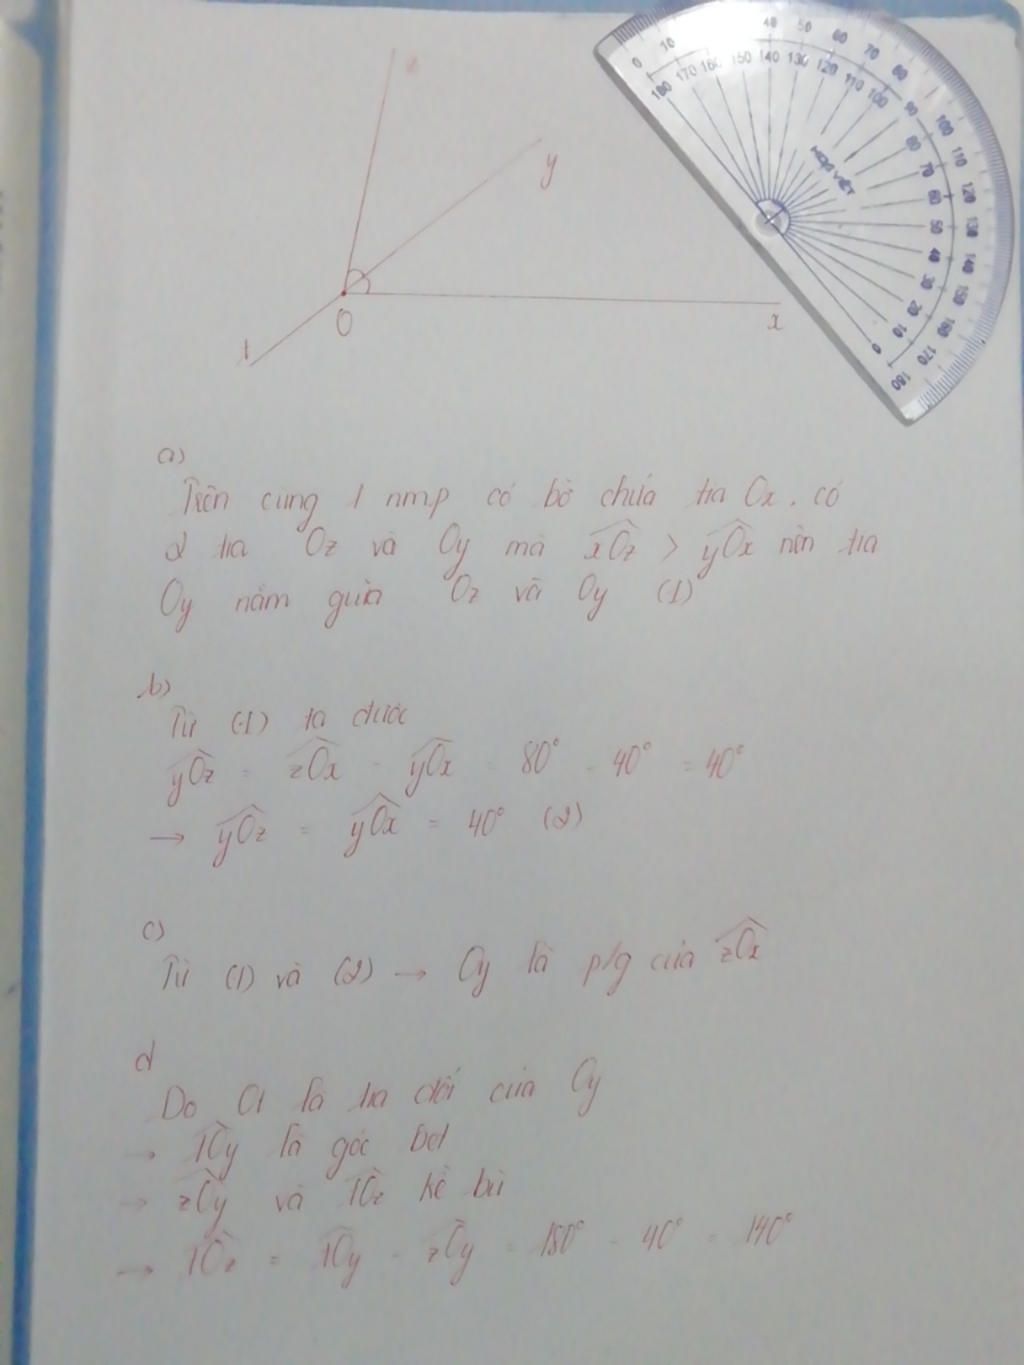 z
y
O
x
t
0 10 40 50 60 70 80 90 100 110 120 130 140 150 160 170 180
180 170 160 150 140 130 120 110 100 80 70 60 50 40 30 20 10 0
HOA VIỆT
a)
Trên cùng 1 nmp có bờ chứa tia Ox. có
2 tia Oz và Oy mà xOz > yOx nên tia
Oy nằm giữa Oz và Oy (1)
b)
Từ (1) ta được
yOz = zOx - yOx = 80° - 40° = 40°
→ yOz = yOx = 40° (2)
c)
Từ (1) và (2) → Oy là p/g của zOx
d
Do Ot là tia đối của Oy
→ tOy là góc bẹt
→ zOy và tOz kề bù
→ tOz = tOy - zOy = 180° - 40° = 140°